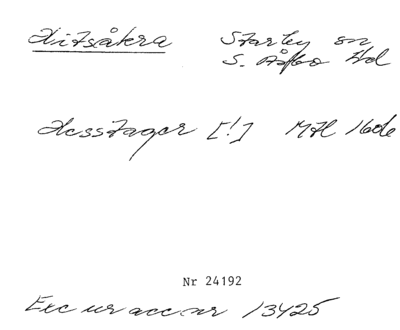 Hitsåkra Starby sn
S. Åsbo Hd
Hessåager [!] MH 160
Nr 24192
Exc ur acc.nr 13425